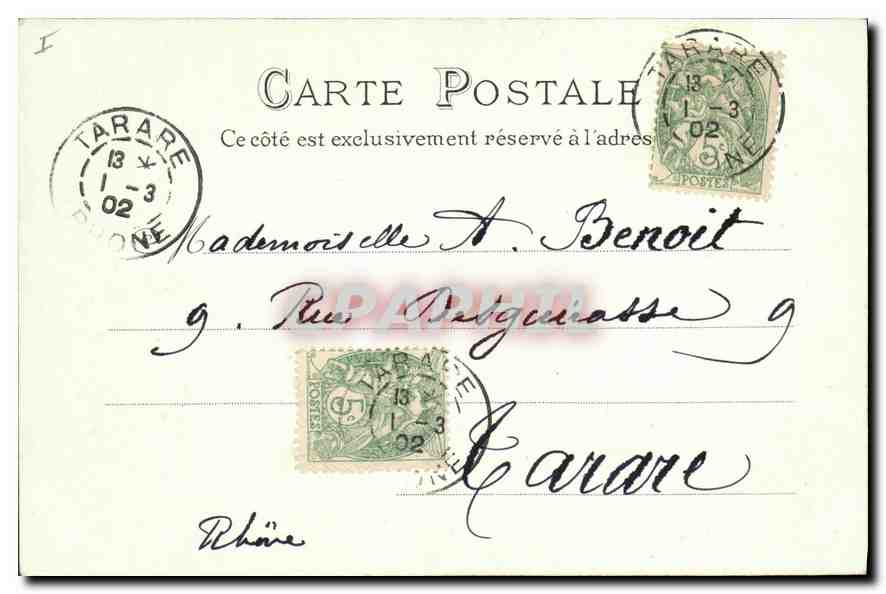 I
CARTE POSTALE
Ce côté est exclusivement réservé à l'adres
TARARE
13
1 - 3
02
RHONE
TARARE
13
1 - 3
02
5c
POSTES
Mademoiselle A. Benoit
9. Rue 9
TARARE
13
1 - 3
02
5c
POSTES
Tarare
Rhône